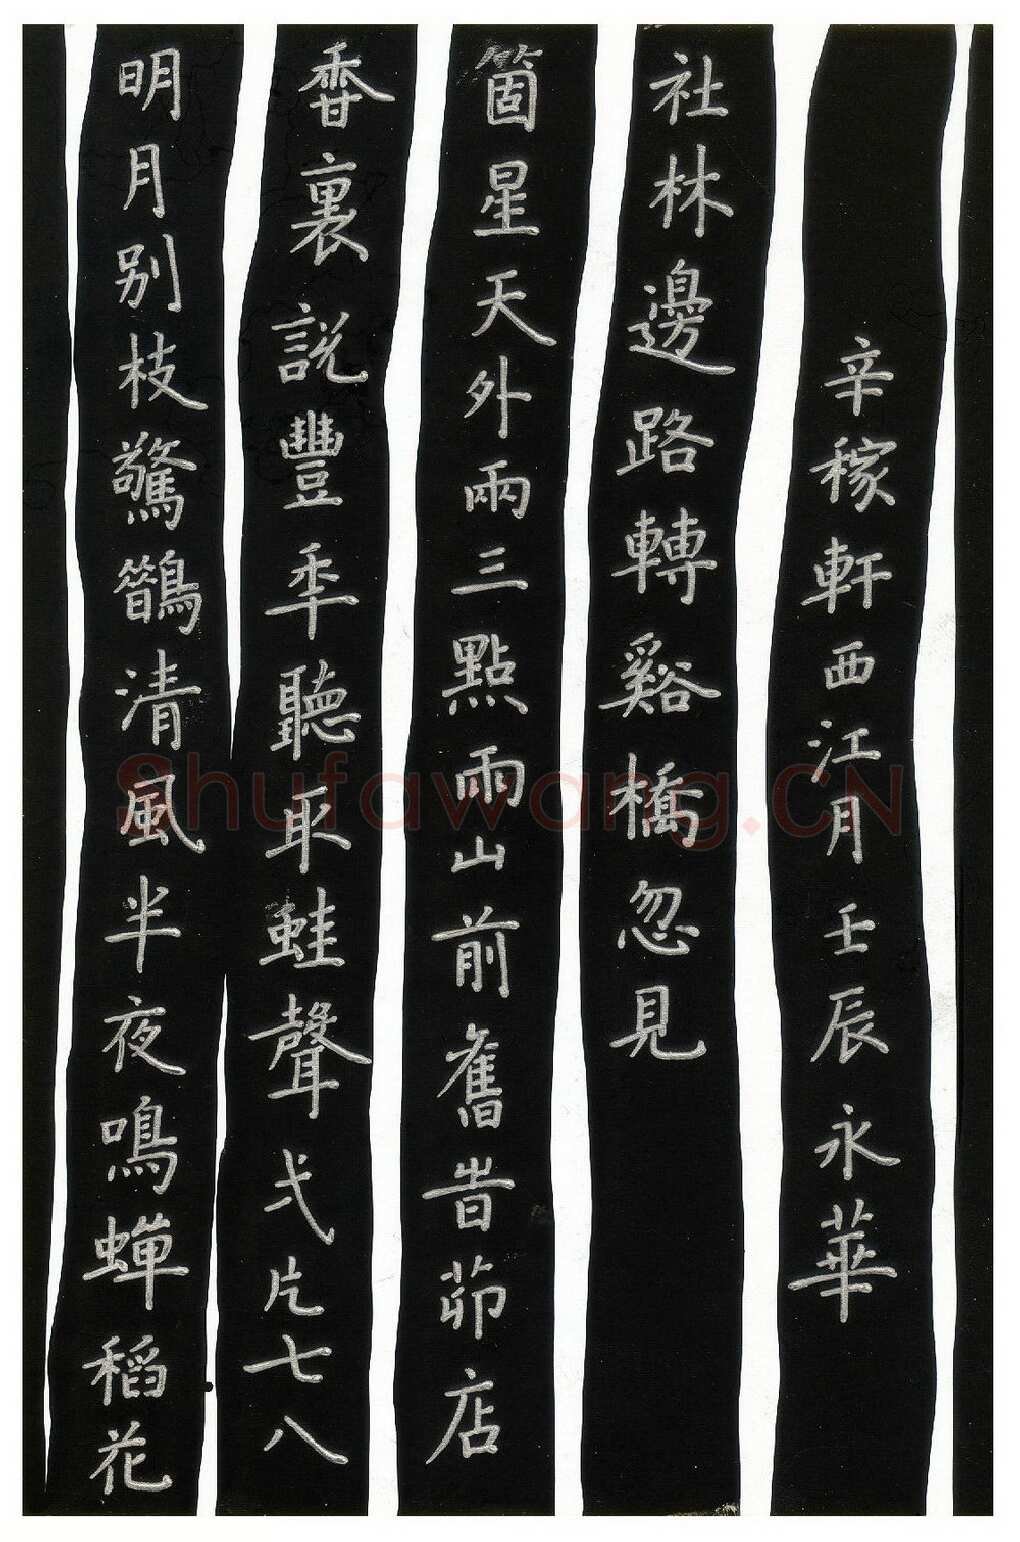 明月别枝驚鵲清風半夜鳴蟬稻花
香裏説豐年聽取蛙聲弌片七八
箇星天外兩三點雨山前舊旹茆店
社林邊路轉谿橋忽見
辛稼軒西江月壬辰永華
Shufawang.CN